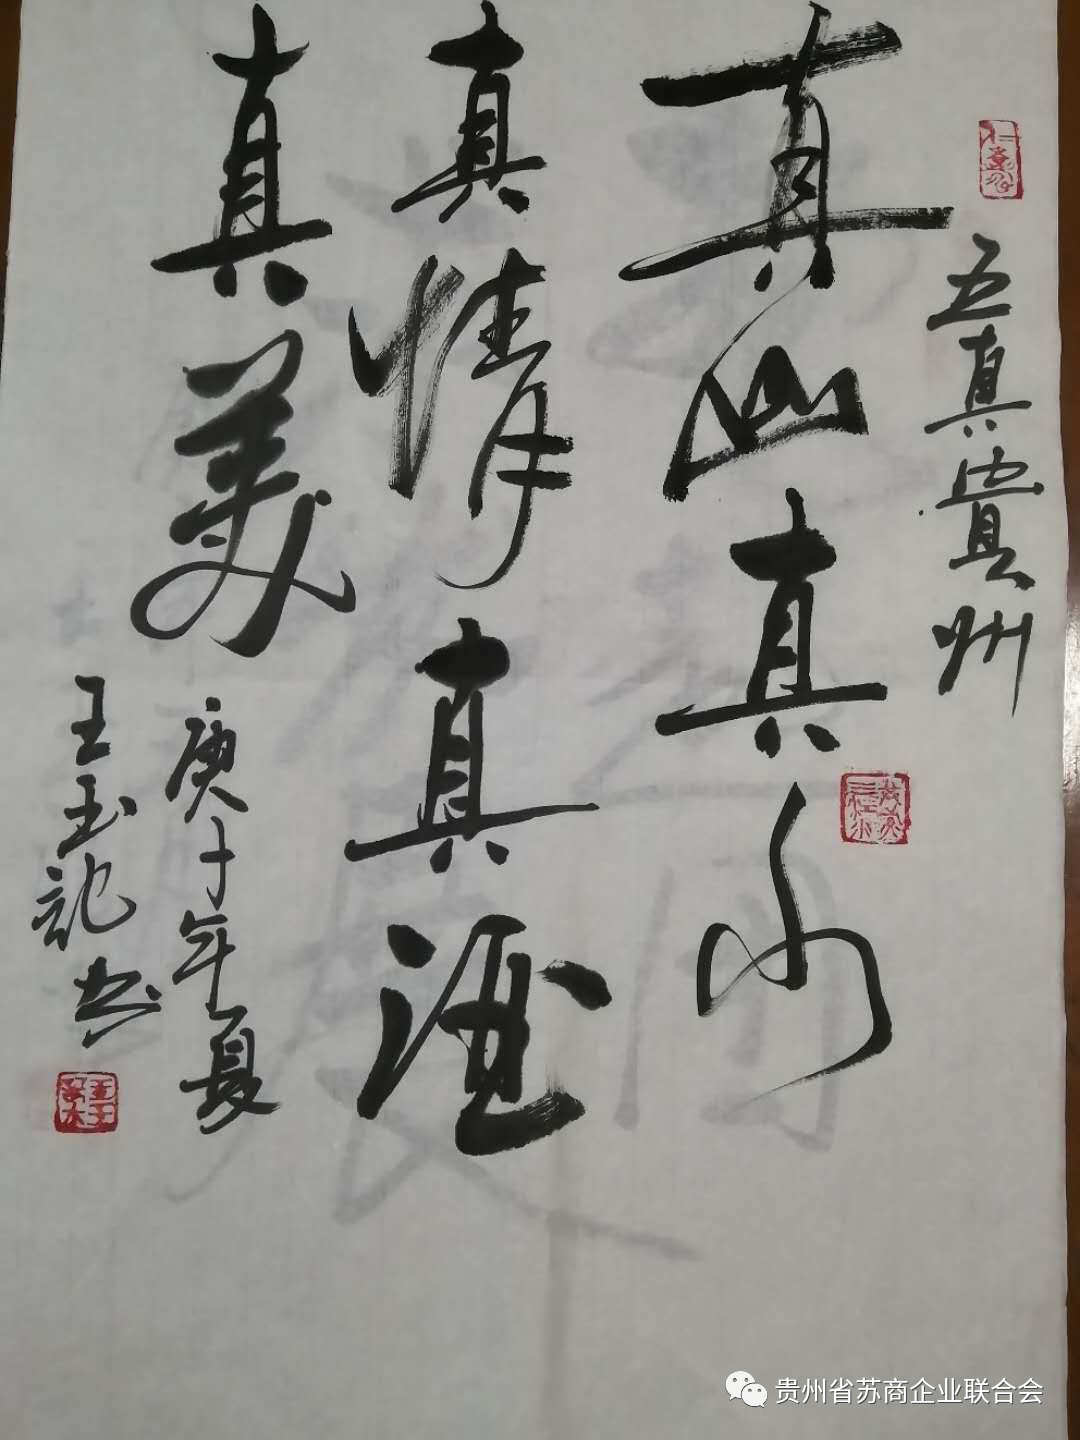 五真贵州
真山真水
真情真酒
真美
庚子年夏
王玉龙书
贵州省苏商企业联合会